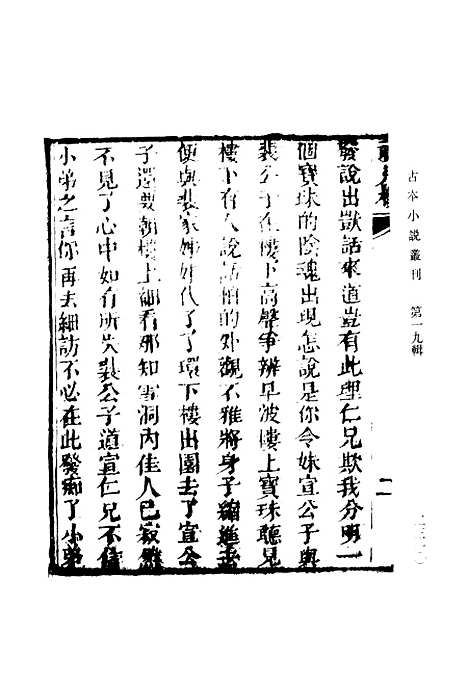 古本小説叢刊　第一九輯
二
發說出獃話來道豈有此理仁兄欺我分明一
個寶珠的陰魂出現怎說是你令妹宣公子與
裴公子在樓下高聲爭辨早波樓上寶珠聽見
樓下有人說話怕的外觀不雅將身子縮進去
便與裴家姊妹代了了環下樓出園去了宣公
子還要朝樓上細看那知雪洞內佳人已寂然
不見了心中如有所失裴公子道宣仁兄不信
小弟之言你再去細訪不必在此發痴了小弟